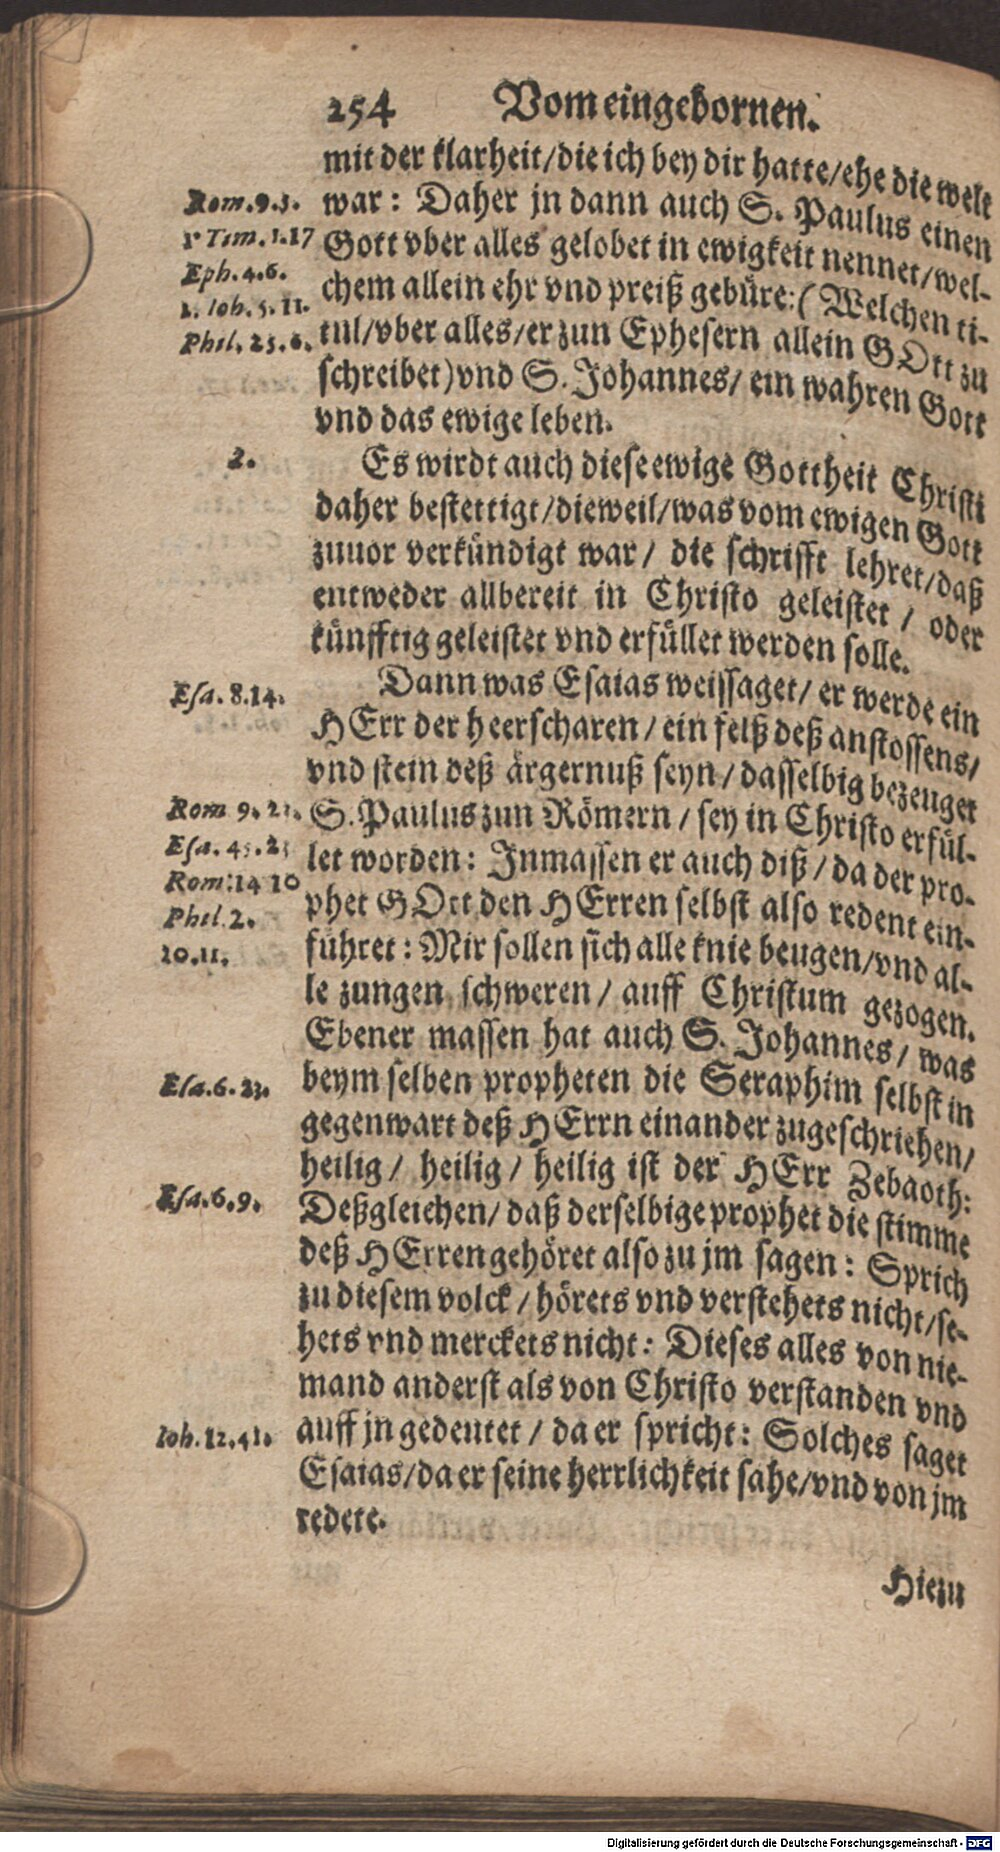 254 Vom eingebornen.
mit der klarheit/die ich bey dir hatte/ehe die welt
Rom.9.5. war: Daher jn dann auch S. Paulus einen
1 Tim.1.17 Gott vber alles gelobet in ewigkeit nennet/wel-
Eph.4.6. chem allein ehr vnd preiß gebüre:(Welchen ti-
1. Ioh.5.11. tul/vber alles/er zun Ephesern allein GOtt zu
Phil.25.6. schreibet)vnd S. Johannes/ ein wahren Gott
vnd das ewige leben.
2. Es wirdt auch diese ewige Gottheit Christi
daher bestettigt/dieweil/was vom ewigen Gott
zuuor verkündigt war/ die schrifft lehret/daß
entweder allbereit in Christo geleistet / oder
künfftig geleistet vnd erfüllet werden solle.
Esa.8.14. Dann was Esaias weissaget/ er werde ein
HErr der heerscharen/ ein felß deß anstossens/
vnd stein deß ärgernuß seyn/ dasselbig bezeuget
Rom 9. S. Paulus zun Römern / sey in Christo erfül-
Esa.45.23 let worden: Inmassen er auch diß/ da der pro-
Rom:14 10 phet GOtt den HErren selbst also redent ein-
Phil.2. führet: Mir sollen sich alle knie beugen/vnd al-
10.11. le zungen schweren/ auff Christum gezogen.
Ebener massen hat auch S. Johannes/ was
Esa.6.23. beym selben propheten die Seraphim selbst in
gegenwart deß HErrn einander zugeschriehen/
heilig/ heilig/ heilig ist der HErr Zebaoth:
Esa.6.9. Deßgleichen/ daß derselbige prophet die stimme
deß HErren gehöret also zu jm sagen: Sprich
zu diesem volck/ hörets vnd verstehets nicht/se-
hets vnd merckets nicht: Dieses alles von nie-
mand anderst als von Christo verstanden vnd
Ioh.12.41. auff jn gedeutet/ da er spricht: Solches saget
Esaias/da er seine herrlichkeit sahe/vnd von jm
redete.
Hiezu
Digitalisierung gefördert durch die Deutsche Forschungsgemeinschaft - DFG